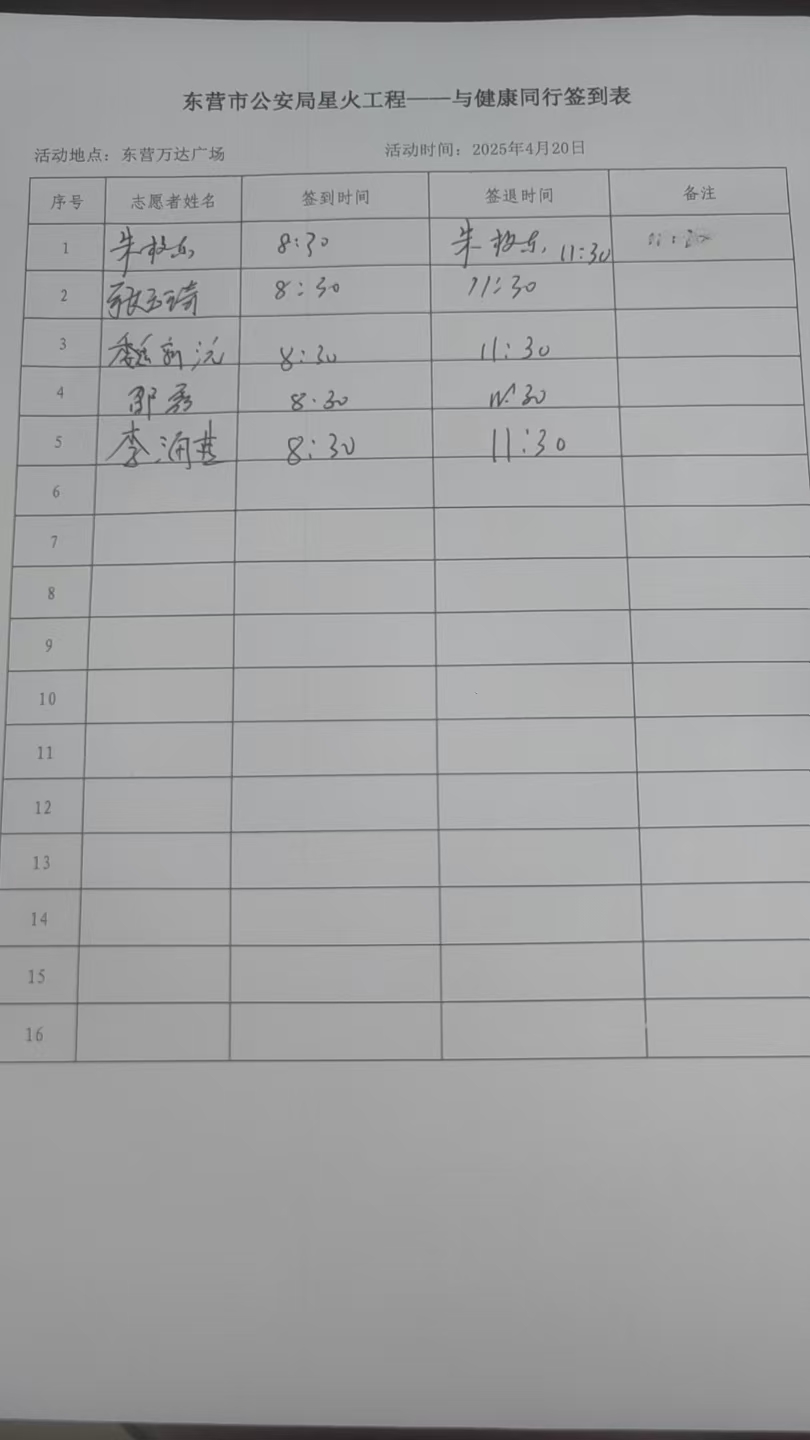 东营市公安局星火工程——与健康同行签到表
活动地点：东营万达广场 活动时间：2025年4月20日
序号 志愿者姓名 签到时间 签退时间 备注
1 朱 8:30 朱 11:30
2 8:30 11:30
3 魏新沅 8:30 11:30
4 邵秀 8:30 11:30
5 李涌 8:30 11:30
6
7
8
9
10
11
12
13
14
15
16